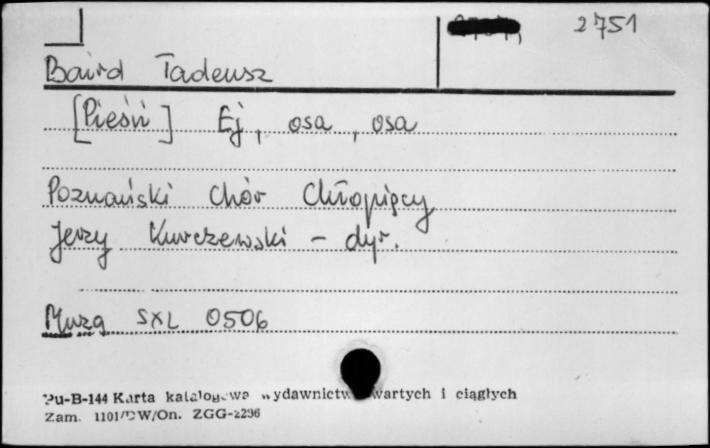 2751
Baird Tadeusz
[Pieśń] Ej, osa, osa
Poznański Chór Chłopięcy
Jerzy Kurczewski - dyr.
Muza SXL 0506
Pu-B-144 Karta katalogowa wydawnictw zwartych i ciągłych
Zam. 1101/DW/On. ZGG-2296